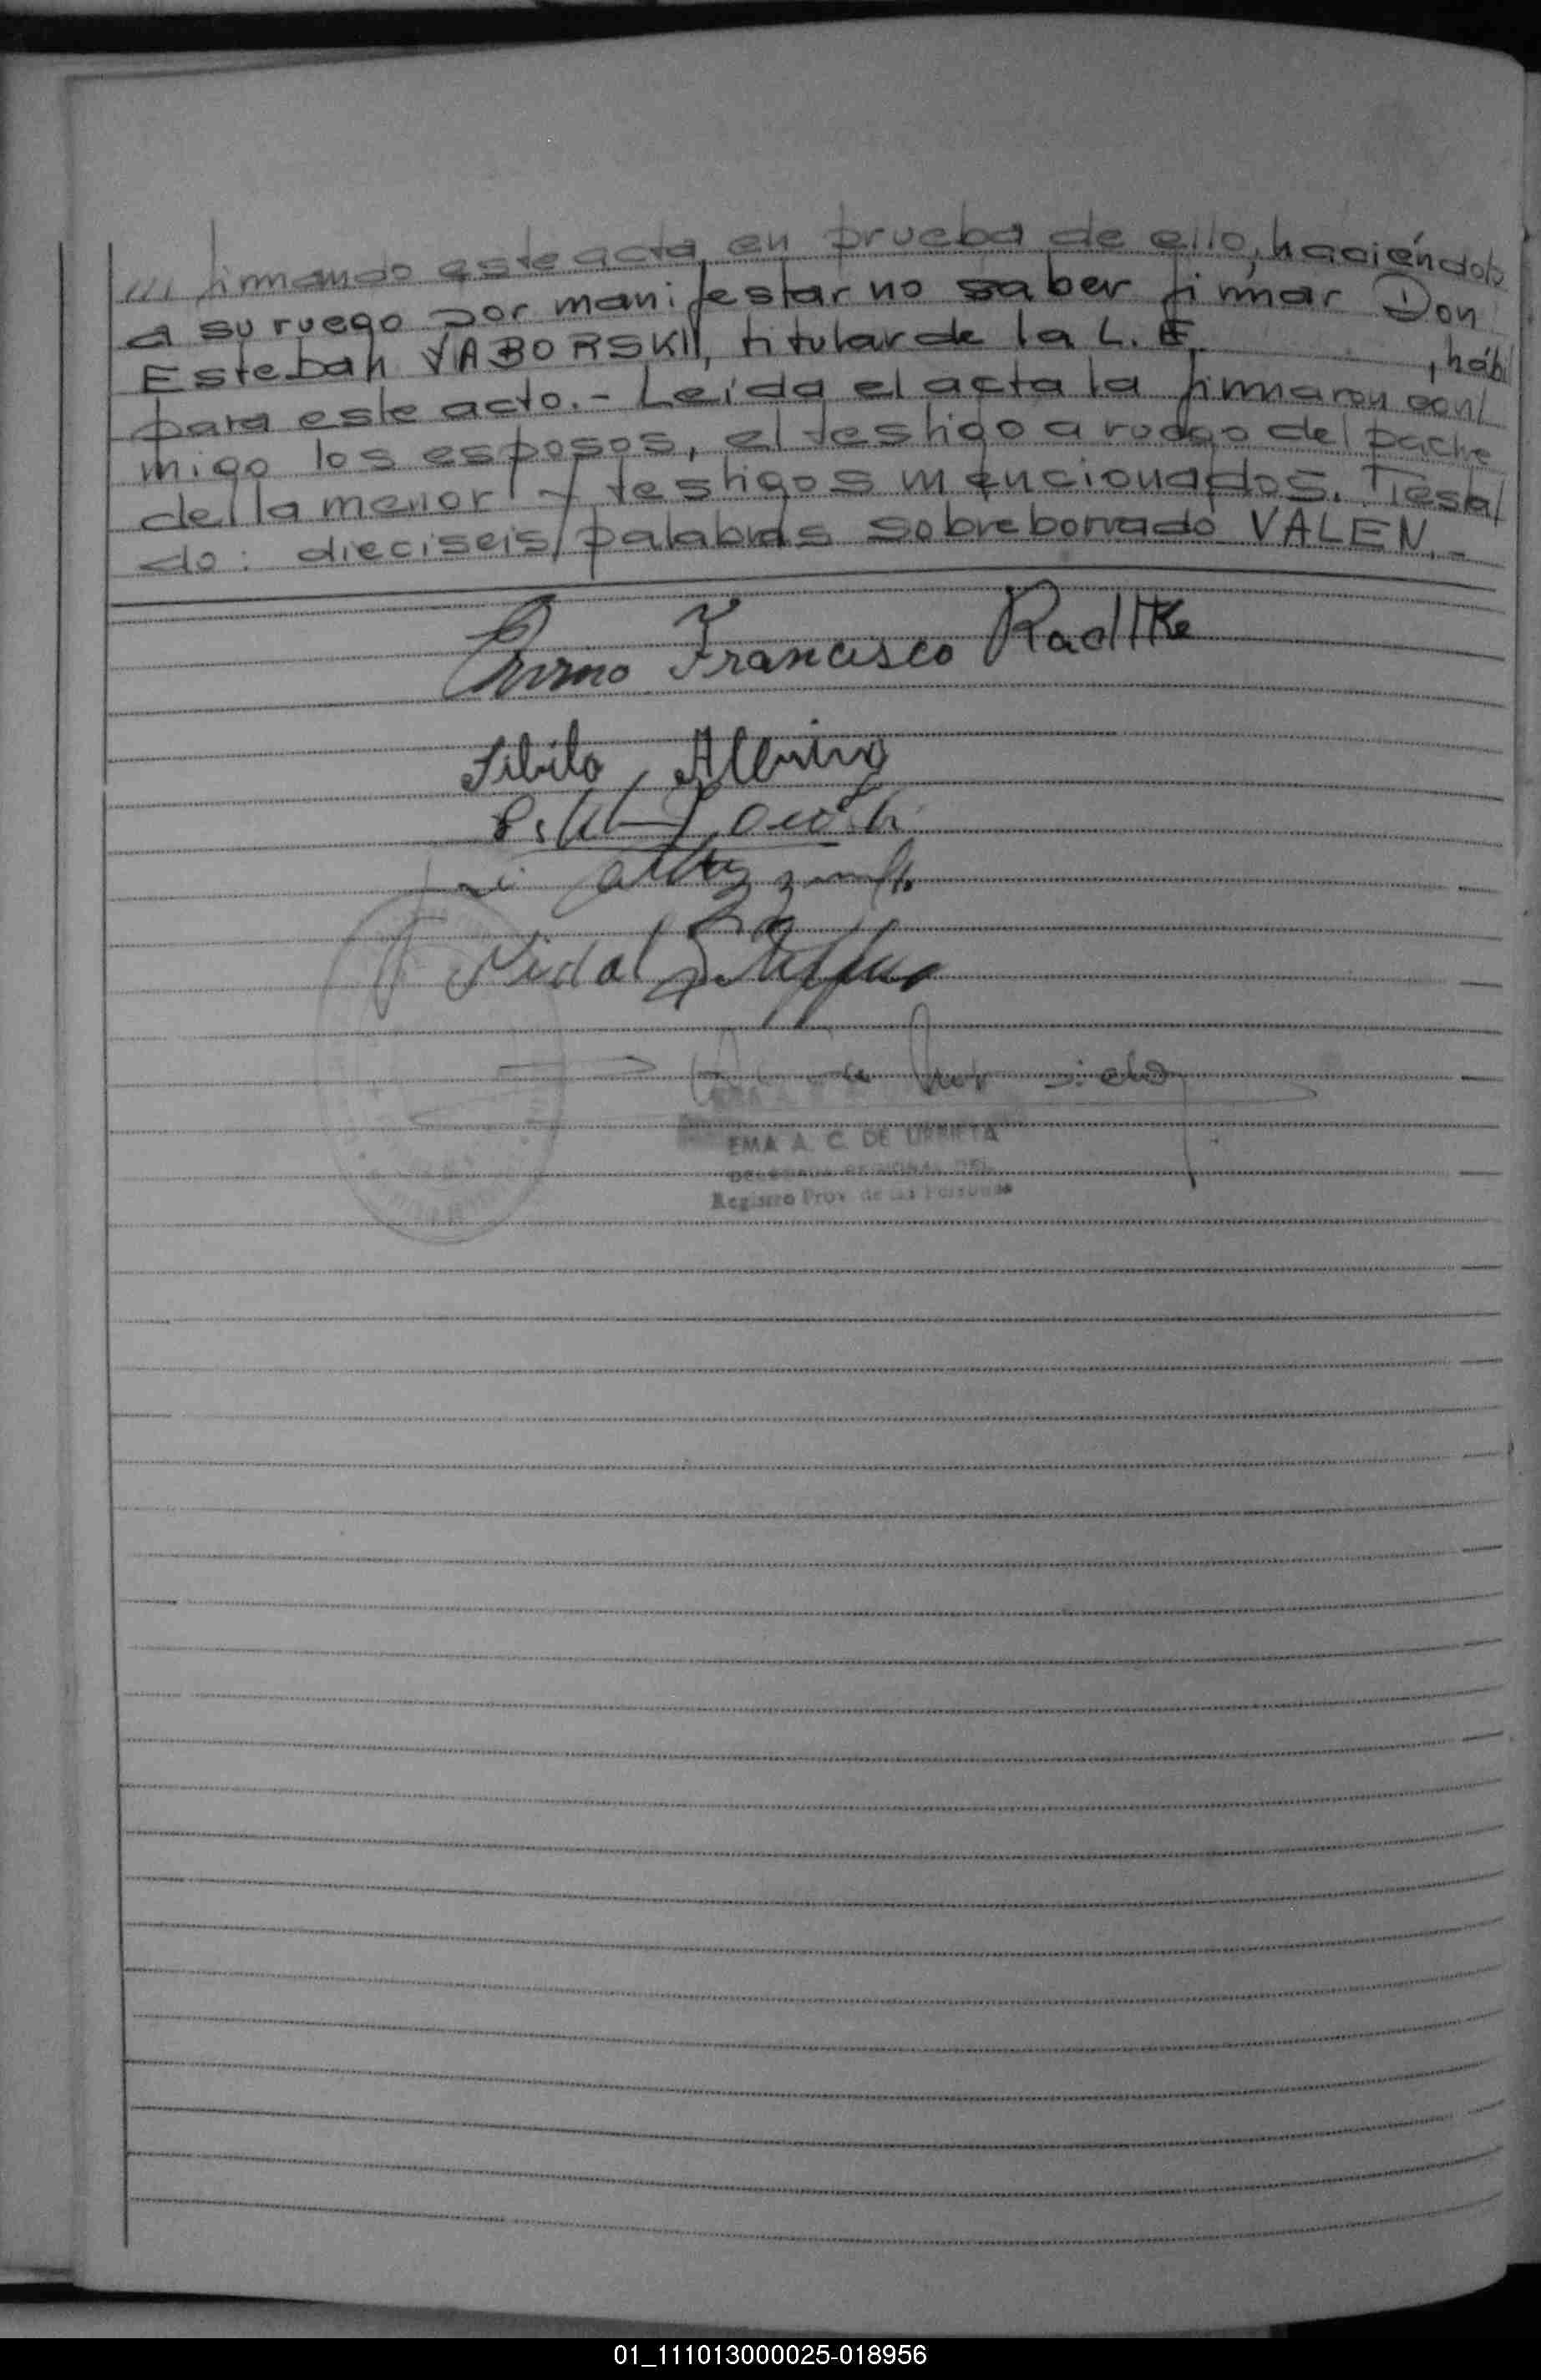 /// firmando este acta en prueba de ello, haciéndolo
a su ruego por manifestar no saber firmar Don
Esteban YABORSKII, titular de la L. E. , hábil
para este acto.- Leída el acta la firmaron con/
migo los esposos, el testigo a ruego del padre
de la menor y testigos mencionados. Testa/
do: dieciseis palabras sobreborrado VALEN.-
Francisco Radtke
Albino
Vidal
EMA A. C. DE URRIETA
Registro Prov. de las Personas
01_111013000025-018956